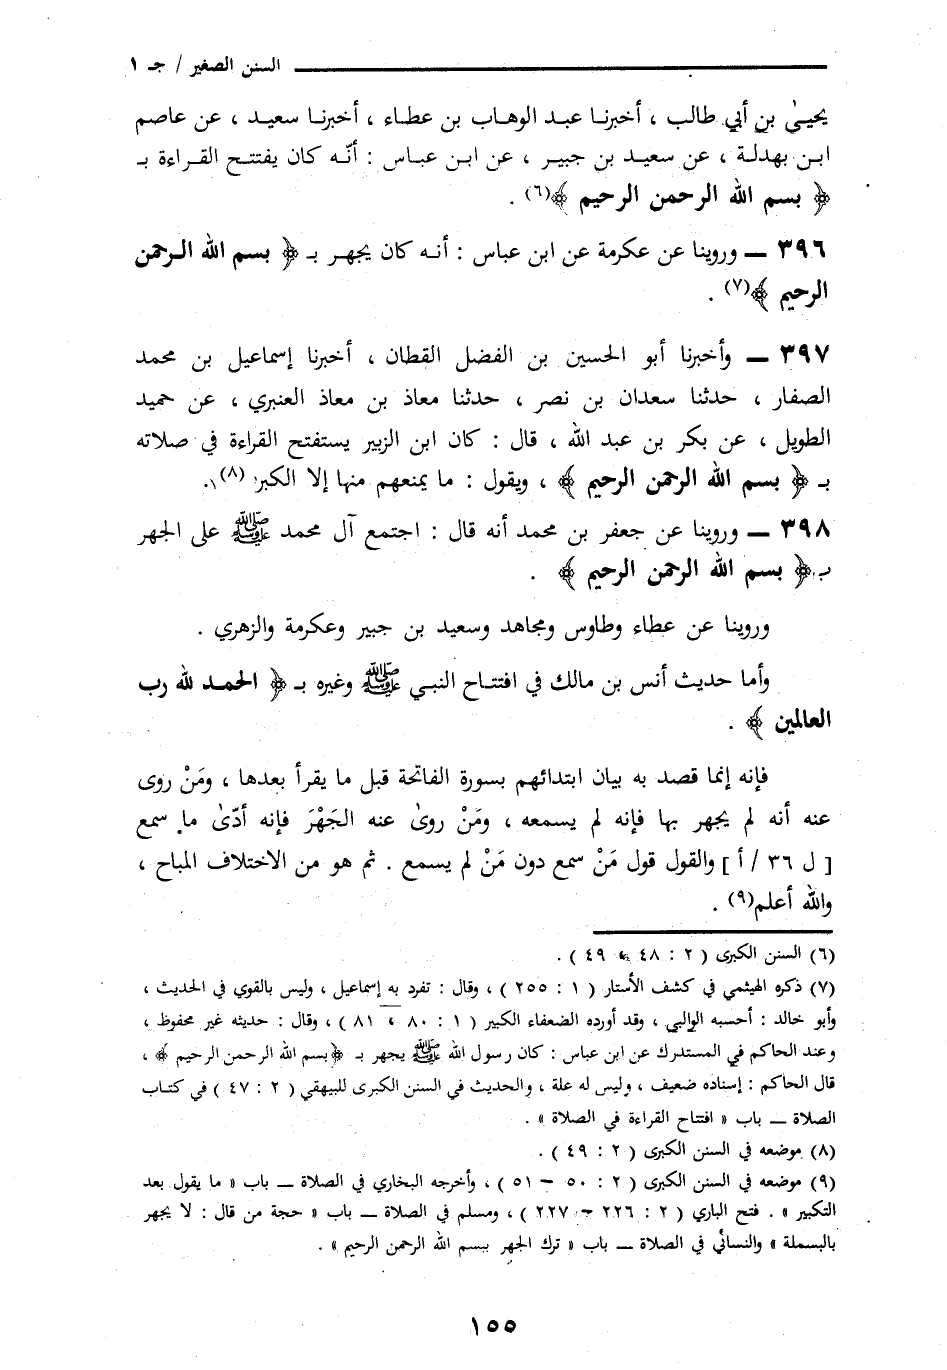 السنن الصغير / جـ ١
يحيىٰ بن أبي طالب ، أخبرنا عبد الوهاب بن عطاء ، أخبرنا سعيد ، عن عاصم
ابن بهدلة ، عن سعيد بن جبير ، عن ابن عباس : أنّه كان يفتتح القراءة بـ
﴿ بسم الله الرحمن الرحيم ﴾(٦) .
٣٩٦ — وروينا عن عكرمة عن ابن عباس : أنه كان يجهر بـ ﴿ بسم الله الرحمن
الرحيم ﴾(٧) .
٣٩٧ — وأخبرنا أبو الحسين بن الفضل القطان ، أخبرنا إسماعيل بن محمد
الصفار ، حدثنا سعدان بن نصر ، حدثنا معاذ بن معاذ العنبري ، عن حميد
الطويل ، عن بكر بن عبد الله ، قال : كان ابن الزبير يستفتح القراءة في صلاته
بـ ﴿ بسم الله الرحمن الرحيم ﴾ ، ويقول : ما يمنعهم منها إلا الكبر (٨).
٣٩٨ — وروينا عن جعفر بن محمد أنه قال : اجتمع آل محمد ﷺ على الجهر
بـ ﴿ بسم الله الرحمن الرحيم ﴾ .
وروينا عن عطاء وطاوس ومجاهد وسعيد بن جبير وعكرمة والزهري .
وأما حديث أنس بن مالك في افتتاح النبي ﷺ وغيره بـ ﴿ الحمد لله رب
العالمين ﴾ .
فإنه إنما قصد به بيان ابتدائهم بسورة الفاتحة قبل ما يقرأ بعدها ، ومَنْ روى
عنه أنه لم يجهر بها فإنه لم يسمعه ، ومَنْ روىٰ عنه الجَهْرَ فإنه أدّىٰ ما سمع
[ ل ٣٦ / أ ] والقول قول مَنْ سمع دون مَنْ لم يسمع . ثم هو من الاختلاف المباح ،
والله أعلم(٩) .
(٦) السنن الكبرى ( ٢ : ٤٨ ، ٤٩ ) .
(٧) ذكره الهيثمي في كشف الأستار ( ١ : ٢٥٥ ) ، وقال : تفرد به إسماعيل ، وليس بالقوي في الحديث ،
وأبو خالد : أحسبه الوالبي ، وقد أورده الضعفاء الكبير ( ١ : ٨٠ ، ٨١ ) ، وقال : حديثه غير محفوظ ،
وعند الحاكم في المستدرك عن ابن عباس : كان رسول الله ﷺ يجهر بـ ﴿بسم الله الرحمن الرحيم ﴾ ،
قال الحاكم : إسناده ضعيف ، وليس له علة ، والحديث في السنن الكبرى للبيهقي ( ٢ : ٤٧ ) في كتاب
الصلاة — باب « افتتاح القراءة في الصلاة » .
(٨) موضعه في السنن الكبرى ( ٢ : ٤٩ ) .
(٩) موضعه في السنن الكبرى ( ٢ : ٥٠ – ٥١ ) ، وأخرجه البخاري في الصلاة — باب « ما يقول بعد
التكبير » . فتح الباري ( ٢ : ٢٢٦ – ٢٢٧ ) ، ومسلم في الصلاة — باب « حجة من قال : لا يجهر
بالبسملة » والنسائي في الصلاة — باب « ترك الجهر ببسم الله الرحمن الرحيم » .
١٥٥